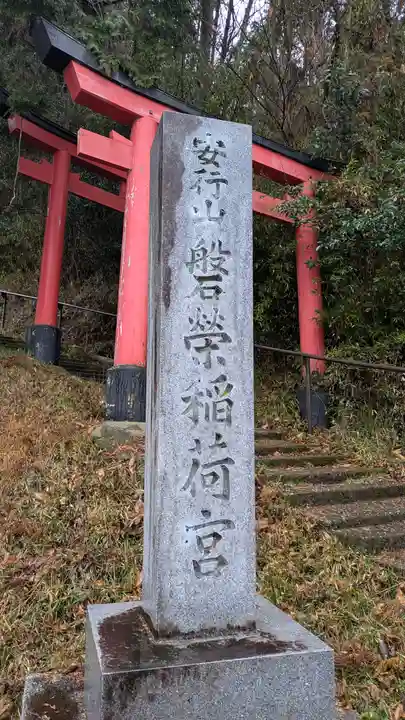 安行山磐榮稲荷宮